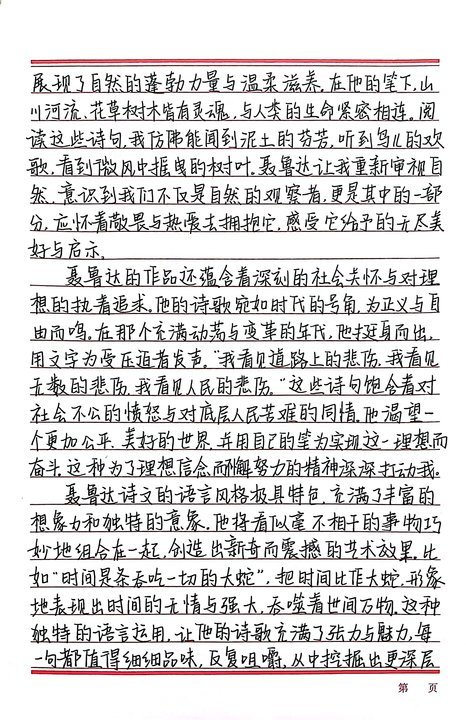 展现了自然的蓬勃力量与温柔滋养。在他的笔下,山
川河流、花草树木皆有灵魂,与人类的生命紧密相连。阅
读这些诗句,我仿佛能闻到泥土的芬芳,听到鸟儿的欢
歌,看到微风中摇曳的树叶。聂鲁达让我重新审视自
然,意识到我们不仅是自然的观察者,更是其中的一部
分,应怀着敬畏与热爱去拥抱它,感受它给予的无尽美
好与启示。
聂鲁达的作品还蕴含着深刻的社会关怀与对理
想的执着追求。他的诗歌宛如时代的号角,为正义与自
由而鸣。在那个充满动荡与变革的年代,他挺身而出,
用文字为受压迫者发声。“我看见道路上的悲伤,我看见
无数的悲伤,我看见人民的悲伤。”这些诗句饱含着对
社会不公的愤怒与对底层人民苦难的同情。他渴望一
个更加公平、美好的世界,并用自己的笔为实现这一理想而
奋斗。这种为了理想信念而不懈努力的精神深深打动我。
聂鲁达诗文的语言风格极具特色,充满了丰富的
想象力和独特的意象。他将看似毫不相干的事物巧
妙地组合在一起,创造出新奇而震撼的艺术效果。比
如“时间是条吞吃一切的大蛇”,把时间比作大蛇,形象
地表现出时间的无情与强大,吞噬着世间万物。这种
独特的语言运用,让他的诗歌充满了张力与魅力,每
一句都值得细细品味,反复咀嚼,从中挖掘出更深层
第 页